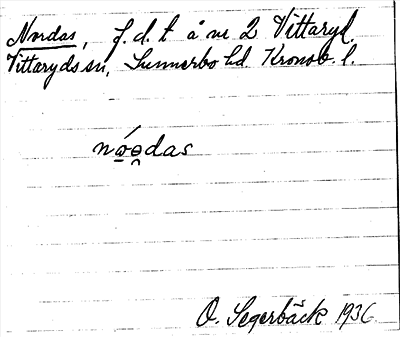 Nordas, f.d. t å nr 2 Vittaryd.
Vittaryds sn, Sunnerbo hd. Kronob. l.
nó̲ə̯das
O. Segerbäck 1936